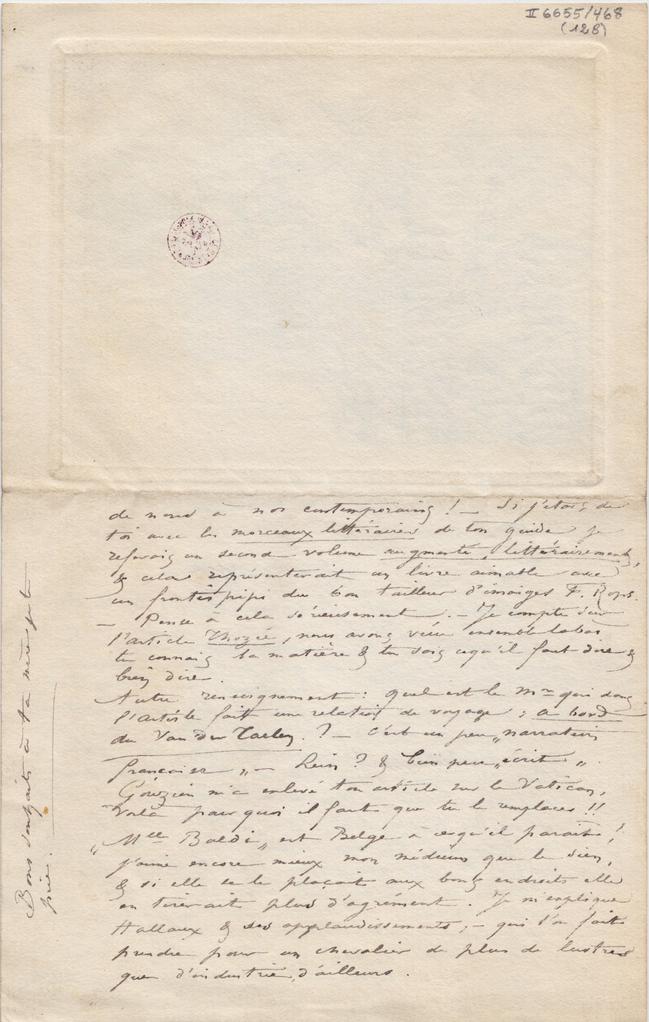 II 6655/468
(128)
de nous à nos contemporains ! – Si j'étais de
toi avec les morceaux littéraires de ton guide je
referais un second volume augmenté littérairement,
& cela représenterait un livre aimable avec
un frontispipi du bon tailleur d'imaiges F. Rops.
– Pense à cela sérieusement. – Je compte sur
l'article, nous avons vécu ensemble labas
tu connais la matière & tu sais cequ'il faut dire &
bien dire.
Autre renseignement : quel est le Mr qui dans
l'artiste fait une relation de voyage : a bord
du Van der ? – c'est un peu „narrateur
françoies „ – Hein ? & bien peu „écrit „.
Gouzien m'a enlevé ton article sur le Vatican,
voilà pourquoi il faut que tu le remplaces !!
„Mlle Baldi„ est Belge à cequ'il paraît !
j'aime encore mieux mon médium que le sien,
& si elle se le plaçait aux bons endroits elle
en tirerait plus d'agrément. Je m'explique
Hallaux & ses applaudissements, – qui l'on fait
prendre pour un chevalier de plus de lustres
que d'industrie, d'ailleurs.
Bons souhaits à ta mère je te
prie.